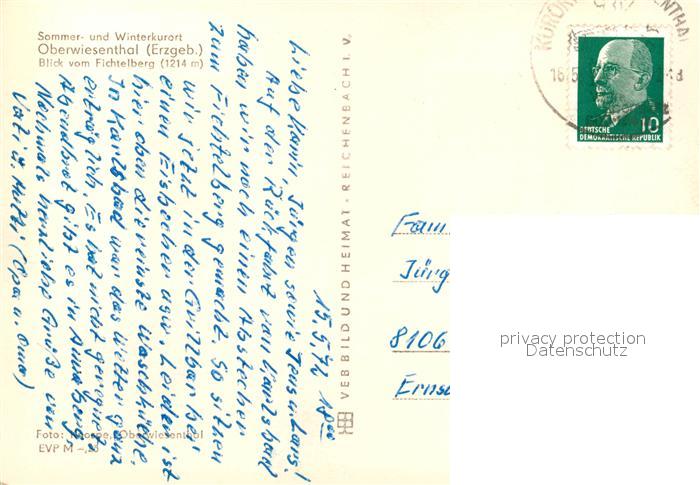 Sommer- und Winterkurort
Oberwiesenthal (Erzgeb.)
Blick vom Fichtelberg (1214 m)
15.5.72 18⁰⁰
Liebe Karin, Jürgen sowie Jens u. Lars!
Auf der Rückfahrt von Karlsbad
haben wir noch einen Abstecher
zum Fichtelberg gemacht. So sitzen
wir jetzt in der Grillbar bei
einen Eisbecher usw. Leider ist
hier oben die reinste Waschküche.
In Karlsbad war das Wetter ganz
erträglich. Es hat nicht geregnet.
Abendbrot gibt es in Annaberg.
Nochmals herzliche Grüße von
Vati u. Mutti (Opa u. Oma)
Foto: Oberwiesenthal
EVP M -,25
VEB BILD UND HEIMAT · REICHENBACH I. V.
KURORT
16.5
10
DEUTSCHE
DEMOKRATISCHE REPUBLIK
Fam.
Jürg
8106
Ernst
privacy protection
Datenschutz